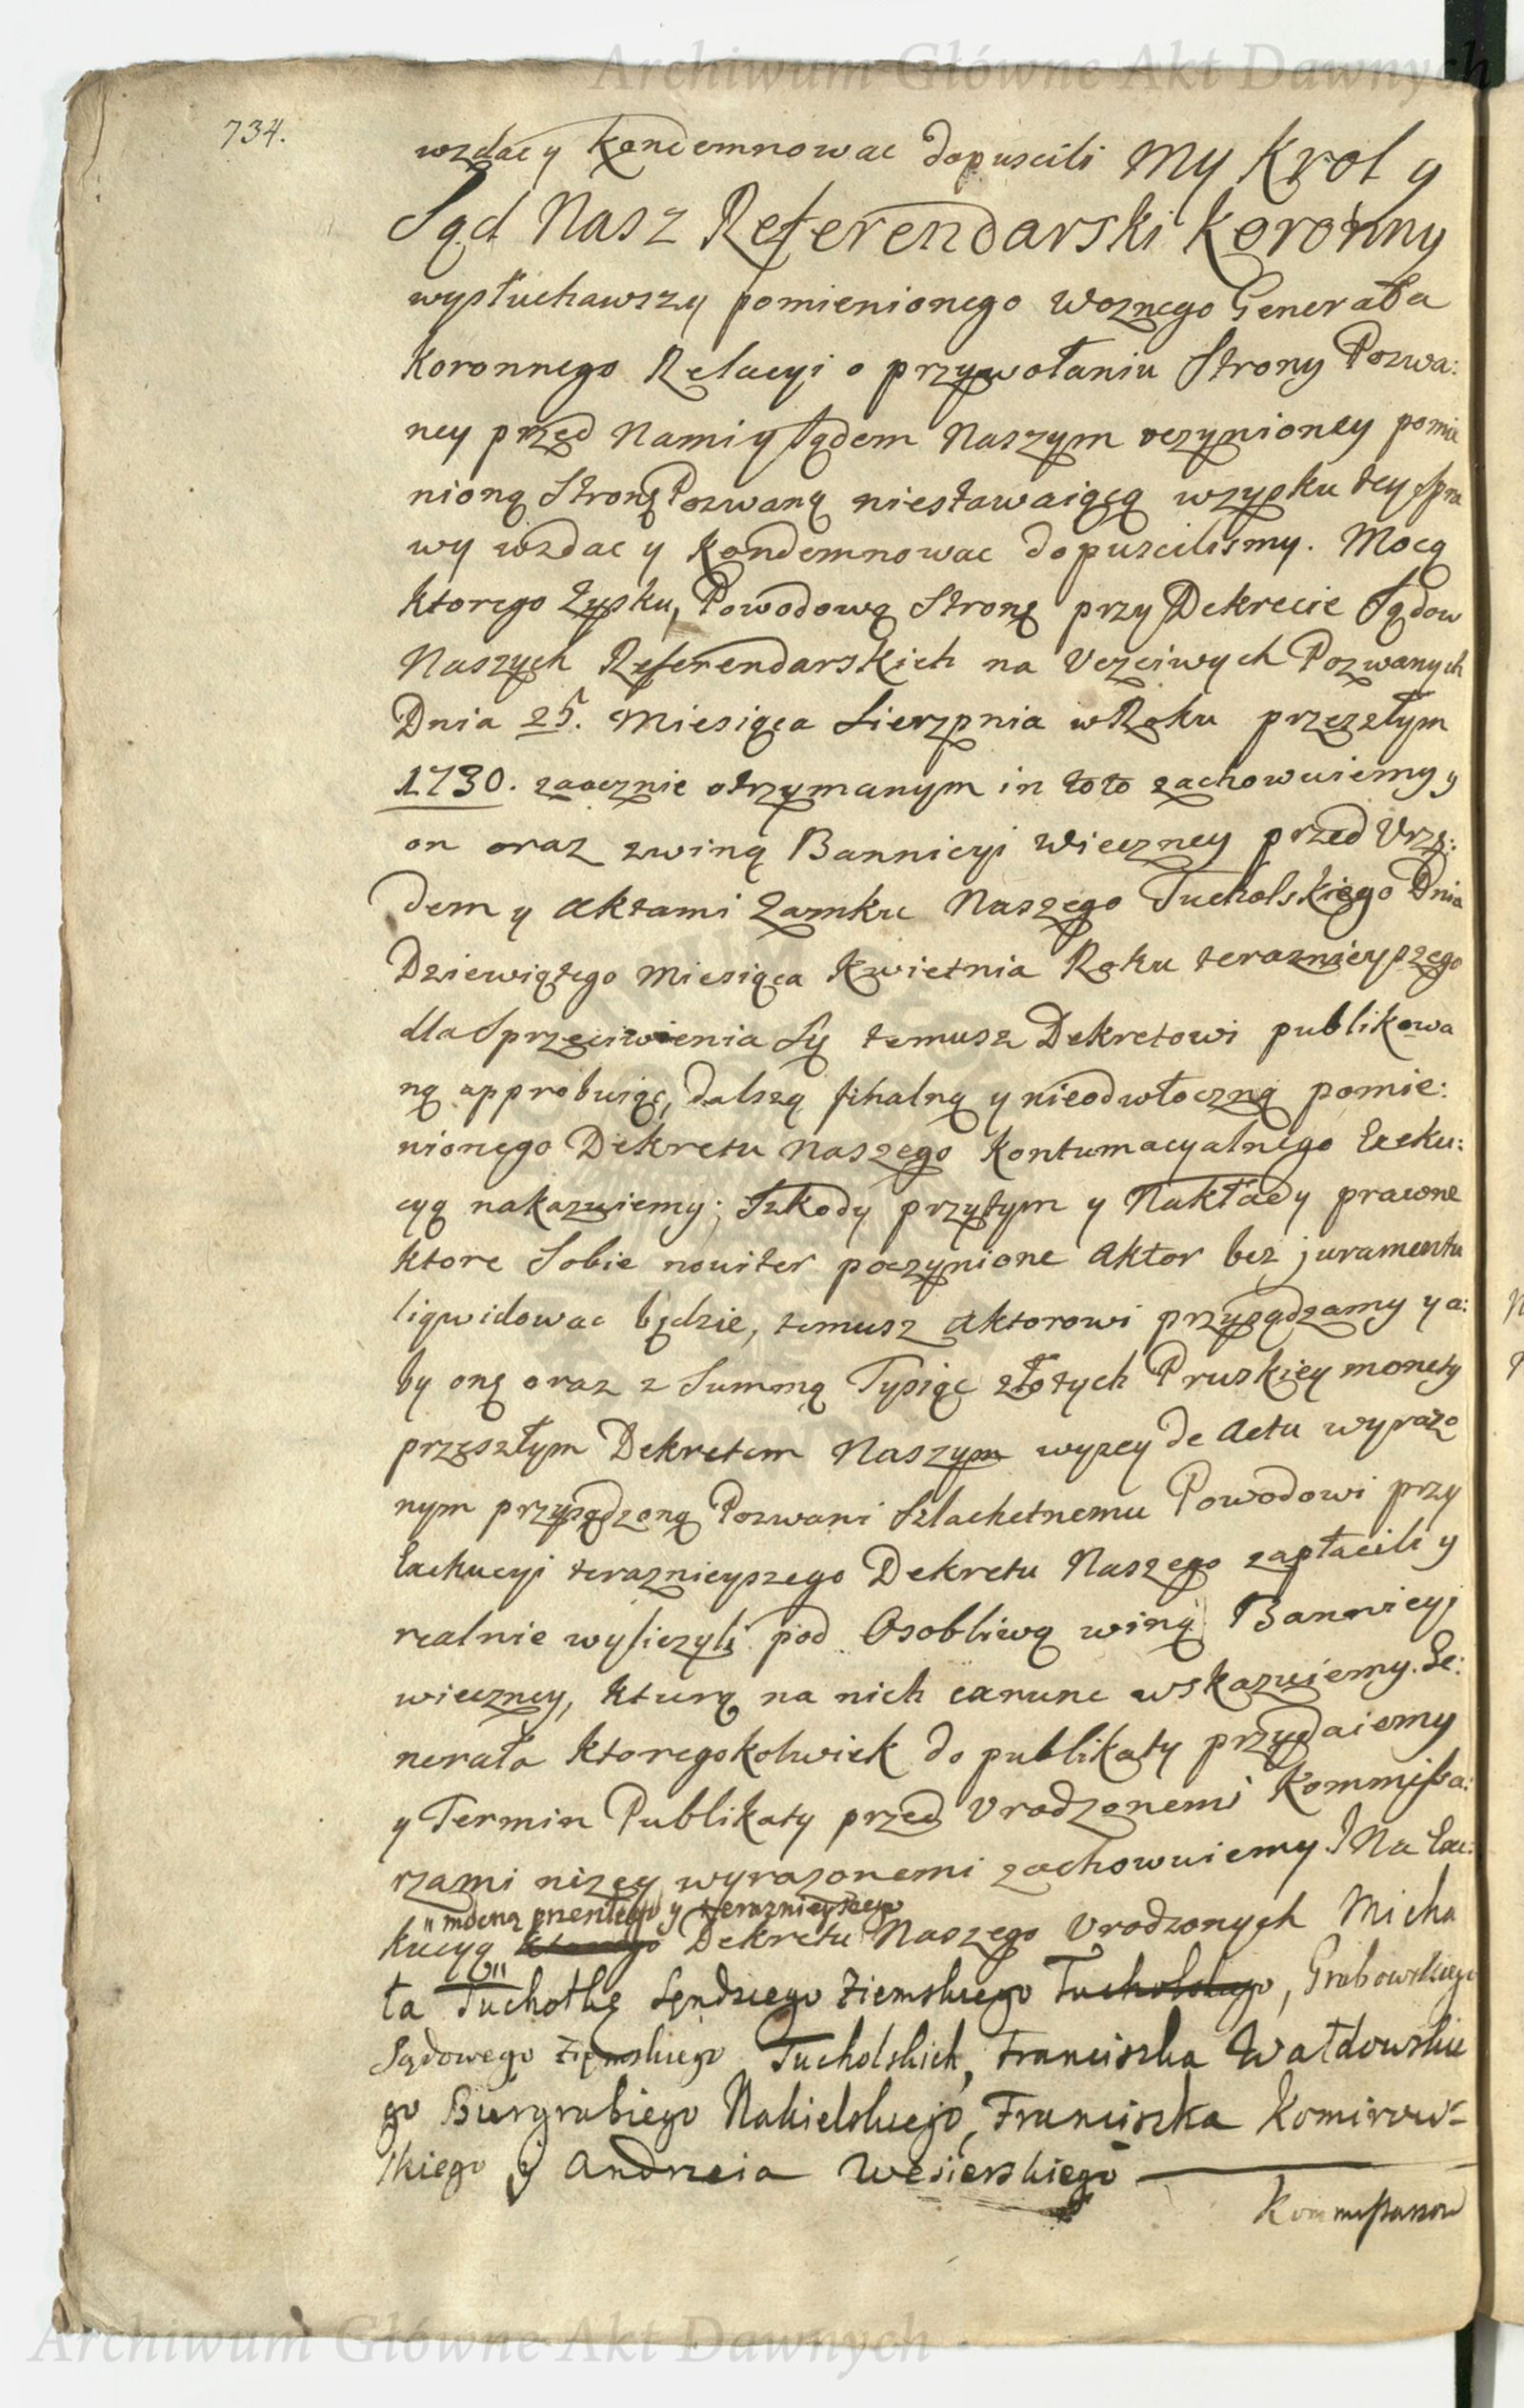 Archiwum Główne Akt Dawnych
734.
wzdac y kondemnowac dopuscili My Krol y
Sąd Nasz Referendarski Koronny
wysłuchawszy pomienionego Woznego Generała
Koronnego Relacyi o przywołaniu Strony Pozwa:
ney przed Nami y Sądem Naszym uczynioney pomie
nioną Stronę Pozwaną niestawaiącą wzysku tey Spra
wy wzdac y kondemnowac dopuscilismy. Mocą
ktorego Zysku, Powodową Stronę przy Dekrecie Sądow
Naszych Referendarskich na Uczciwych Pozwanych
Dnia 25. Miesiąca Sierzpnia w Roku przeszłym
1730. zaocznie otrzymanym in toto zachowuiemy y
on oraz zwiną Bannicyi Wieczney przed Urzę:
dem y Aktami Zamku Naszego Tucholskiego Dnia
Dziewiątego Miesiąca Kwietnia Roku teraznieyszego
dla Sprzeciwienia Się temusz Dekretowi publikowa
ną approbuiąc, dalszą finalną y nieodwłoczną pomie:
nionego Dekretu Naszego Kontumacyalnego Exeku:
cyą nakazuiemy; Szkody przytym y Nakłady prawne
ktore Sobie noviter poczynione Aktor bez juramentu
liqwidowac będzie, temusz Aktorowi przysądzamy y a:
by onę oraz z Summą Tysiąc złotych Pruskiey monety
przeszłym Dekretem Naszym wyzey de Actu wyrazo
nym przysądzoną Pozwani Szlachetnemu Powodowi przy
Exekucyi teraznieyszego Dekretu Naszego zapłacili y
realnie wyliczyli pod Osobliwą winą Bannicyi
wieczney, kturą na nich exnunc wskazuiemy. Ge:
nerała ktoregokolwiek do publikaty przydaiemy
y Termin Publikaty przed Urodzonemi Kommissa:
rzami nizey wyrazonemi zachowuiemy. Na Exe:
" mocną przeszłego y teraznieyszego
kucyą ktorego Dekretu Naszego Urodzonych Micha
ła Tuchołkę Sędziego Ziemskiego Tucholskiego, Grabowskiego
Sądowego Ziemskiego Tucholskich, Franciszka Wałdowskie
go Burgrabiego Nakielskiego, Franciszka Komirow=
skiego y Andrzeia Wesierskiego
Kommissarzow
Archiwum Główne Akt Dawnych